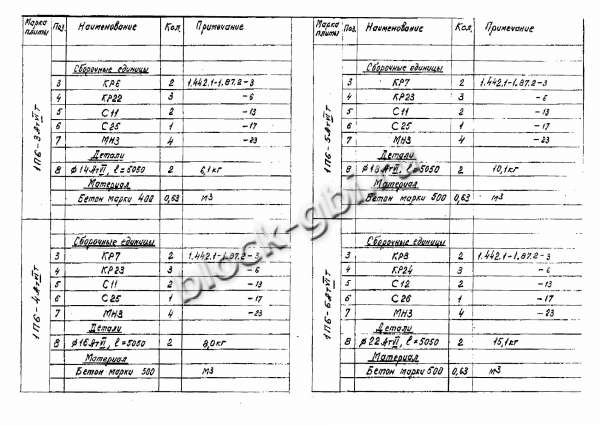 Марка плиты Поз. Наименование Кол. Примечание
1П6-3АтVIТ
Сборочные единицы
3 КР6 2 1.442.1-1.87.2-3
4 КР22 3 -6
5 С11 2 -13
6 С25 1 -17
7 МН3 4 -23
Детали
8 ⌀14АтVI, ℓ=5050 2 6,1кг
Материал
Бетон марки 400 0,63 м3
1П6-4АтVIТ
Сборочные единицы
3 КР7 2 1.442.1-1.87.2-3
4 КР23 3 -6
5 С11 2 -13
6 С25 1 -17
7 МН3 4 -23
Детали
8 ⌀16АтVI, ℓ=5050 2 8,0кг
Материал
Бетон марки 500 м3
Марка плиты Поз. Наименование Кол. Примечание
1П6-5АтVIТ
Сборочные единицы
3 КР7 2 1.442.1-1.87.2-3
4 КР23 3 -6
5 С11 2 -13
6 С25 1 -17
7 МН3 4 -23
Детали
8 ⌀18АтVI, ℓ=5050 2 10,1кг
Материал
Бетон марки 500 0,63 м3
1П6-6АтVIТ
Сборочные единицы
3 КР8 2 1.442.1-1.87.2-3
4 КР24 3 -6
5 С12 2 -13
6 С26 1 -17
7 МН3 4 -23
Детали
8 ⌀22АтVI, ℓ=5050 2 15,1кг
Материал
Бетон марки 500 0,63 м3
block-gbi.ru